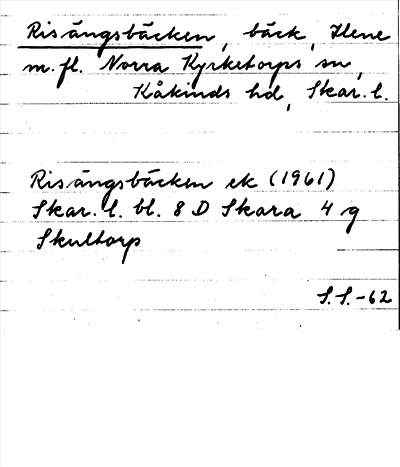 Risängsbäcken, bäck, Ilene
m.fl. Norra Kyrketorps sn,
Kåkinds hd, Skar. l.
Risängsbäcken ek (1961)
Skar. l. bl. 8 D Skara 4 g
Skultorp
S.S.-62